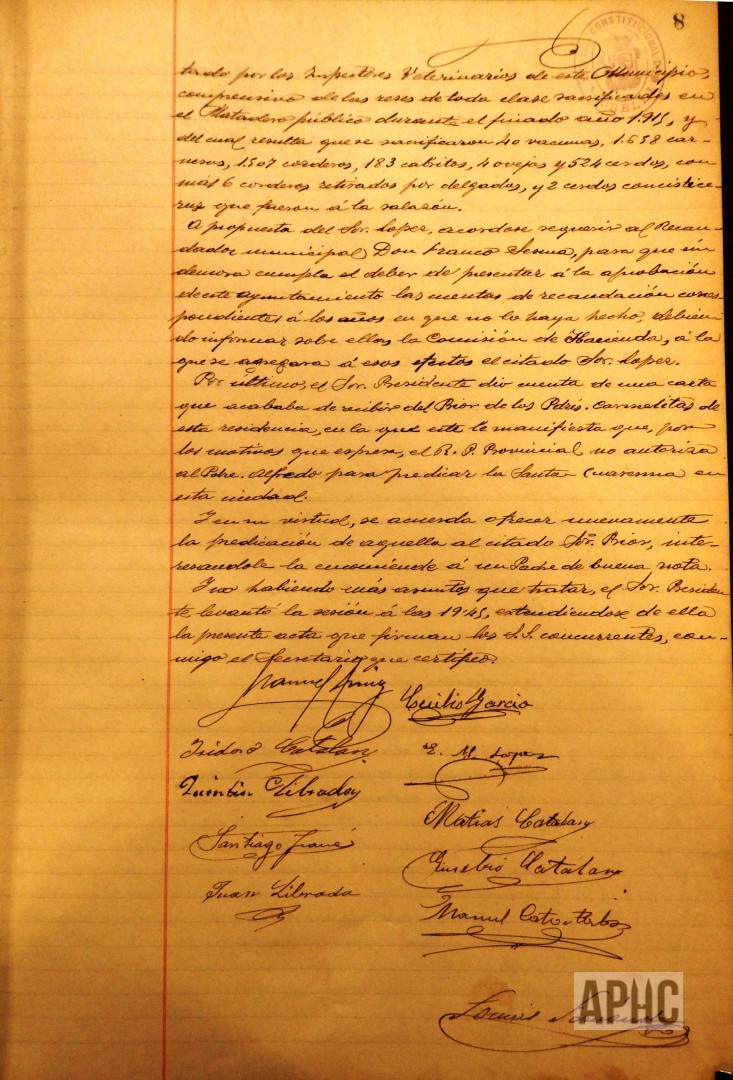 8
CONSTITUCIONAL
tado por los Inspectores Veterinarios de este Municipio,
comprensivo de las reses de toda clase sacrificadas en
el Matadero público durante el finado año 1.915, y
del cual resulta que se sacrificaron 40 vacunas, 1.658 car-
neros, 1.507 corderos, 183 cabritos, 40 vejas y 524 cerdos, con
más 6 corderos retirados por delgados, y 2 cerdos con cistice-
rus que fueron á la salazón.
A propuesta del Sor. Lopez, acordose requerir al Recau-
dador municipal Don Franco Sesma, para que sin
demora cumpla el deber de presentar á la aprobación
de este ayuntamiento las cuentas de recaudación corres-
pondientes á los años en que no lo haya hecho, debien-
do informar sobre ellas la Comisión de Hacienda, á la
que se agregara á esos efectos el citado Sor. Lopez.
Por último, el Sor. Presidente dió cuenta de una carta
que acababa de recibir del Prior de los Pdres. Carmelitas de
esta residencia, en la que este le manifiesta que, por
los motivos que expresa, el R. P. Provincial no autoriza
al Pdre. Alfredo para predicar la Santa Cuaresma en
esta ciudad.
Y en su virtud, se acuerda ofrecer nuevamente
la predicación de aquella al citado Sor. Prior, inte-
resandole la encomiende á un Padre de buena nota.
Y no habiendo más asuntos que tratar, el Sor. Presiden-
te, levantó la sesión á las 19'45, extendiendose de ella
la presente acta que firman los S.S. concurrentes, con-
migo el Secretario, que certifico.
Manuel
Cecilio Garcia
Isidoro Catalan
E. M. Lopez
Quintin Librada
Matias Catalan
Santiago
Eusebio Catalan
Juan Librada
Manuel
APHC